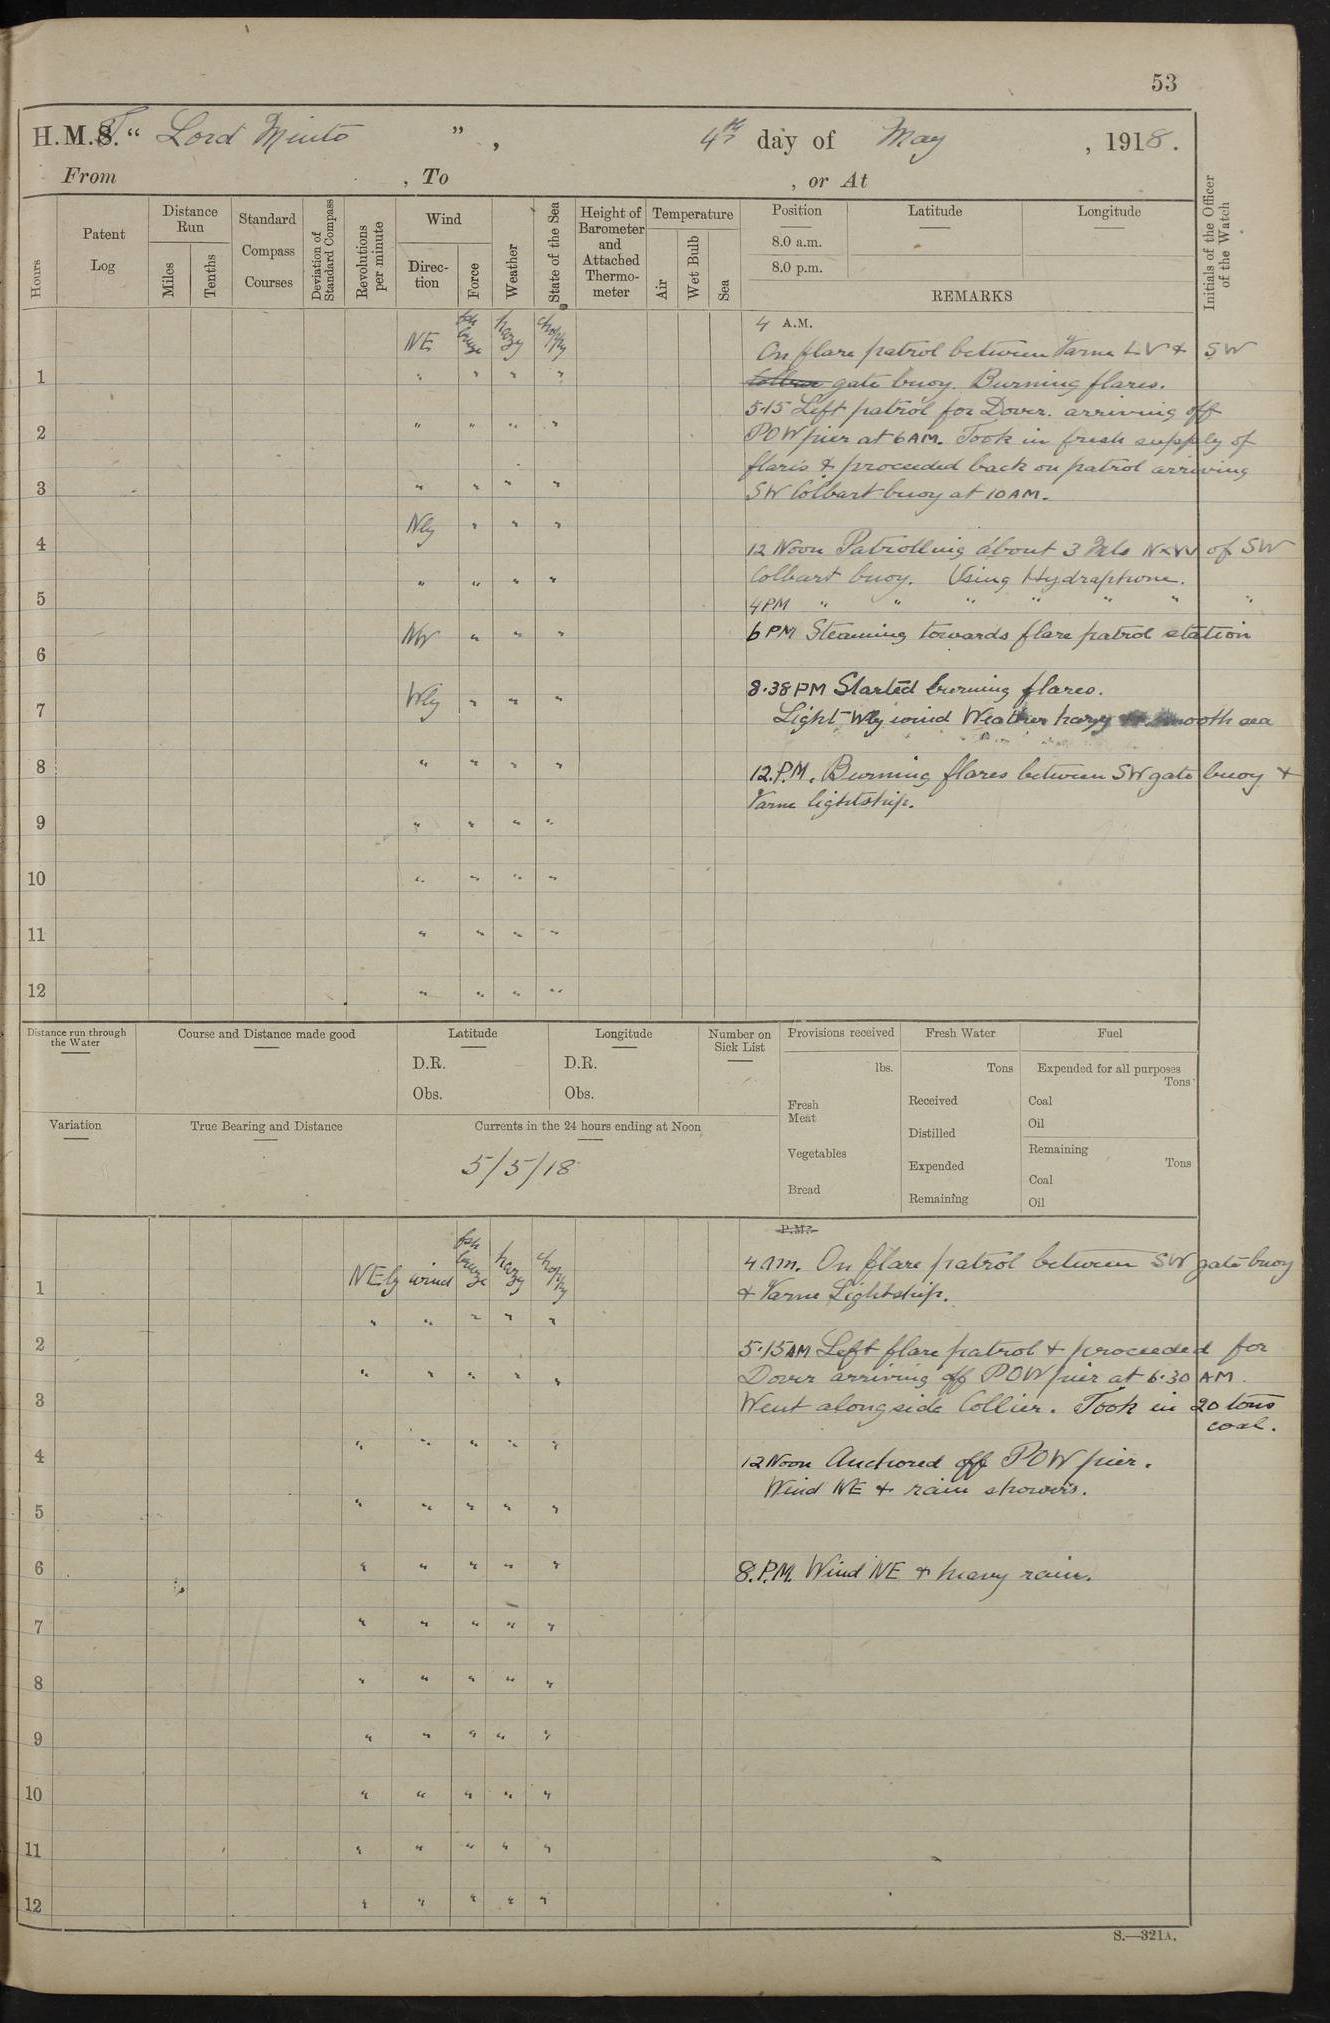 53
H.M.S. T. " Lord Minto ", 4th day of May, 1918.
From , To , or At
Hours
Patent Log
Distance Run
Miles
Tenths
Standard Compass Courses
Deviation of Standard Compass
Revolutions per minute
Wind
Direction
Force
Weather
State of the Sea
Height of Barometer and Attached Thermometer
Temperature
Air
Wet Bulb
Sea
Position
8.0 a.m.
8.0 p.m.
Latitude
Longitude
REMARKS
Initials of the Officer of the Watch
NE fsh breeze hazy choppy
4 A.M.
On flare patrol between Varne LV & SW
1 " " " "
Colbar gate buoy. Burning flares.
5.15 Left patrol for Dover. arriving off
2 " " " "
POW pier at 6 AM. Took in fresh supply of
flares & proceeded back on patrol arriving
3 " " " "
SW Colbart buoy at 10 AM.
Nly " " "
4
12 Noon Patrolling about 3 Mls of SW
" " " "
Colbart buoy. Using Hydraphone.
5
4PM " " " " " " "
NW " " "
6 PM Steaming towards flare patrol station
6
8.38 PM Started burning flares.
Wly " " "
7
Light Wly wind Weather hazy smooth sea
8 " " " "
12.P.M. Burning flares between SW gate buoy &
Varne lightship.
9 " " " "
10 " " " "
11 " " " "
12 " " " "
Distance run through the Water
Course and Distance made good
Latitude
D.R.
Obs.
Longitude
D.R.
Obs.
Number on Sick List
Provisions received
lbs.
Fresh Meat
Vegetables
Bread
Fresh Water
Tons
Received
Distilled
Expended
Remaining
Fuel
Expended for all purposes
Tons
Coal
Oil
Remaining
Tons
Coal
Oil
Variation
True Bearing and Distance
Currents in the 24 hours ending at Noon
5/5/18
P.M.
NEly wind fsh breeze hazy choppy
4 am. On flare patrol between SW gate buoy
1
& Varne Lightship.
" " " " "
2
5.15 AM Left flare patrol & proceeded for
" " " " "
Dover arriving off POW pier at 6.30 AM.
3
Went alongside Collier. Took in 20 tons
coal.
" " " " "
4
12 Noon Anchored off POW pier.
Wind NE & rain showers.
" " " " "
5
6 " " " " "
8.P.M. Wind NE & heavy rain.
7 " " " " "
8 " " " " "
9 " " " " "
10 " " " " "
11 " " " " "
12 " " " " "
S.—321A.